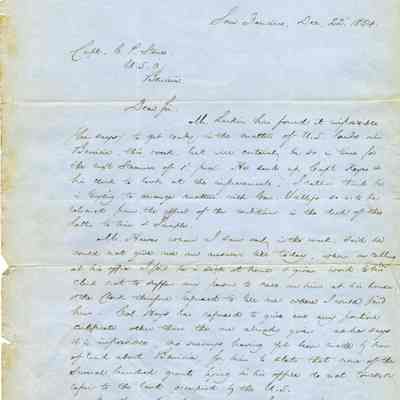 San Francisco, Dec. 22d 1854.
Capt. C. P. Stone
U.S.A.
Benicia
Dear Sir
Mr. Larkin has found it impossible
(he says) to get ready in the matter of U.S. lands in
Benicia this week but will certainly be so in time for
the next Steamer of 1st prox. He sent up Capt. Keyes &
his clerk to look at the improvements. I rather think he
is trying to arrange matters with Gen. Vallejo so as to be
relieved from the effect of the condition in the deed of the
latter to him & Semple.
Mr. Hawes whom I saw early in the week said he
could not give me an answer till today, when on calling
at his office I find he is sick at home & given word to his
Clerk not to suffer any person to call on him at his house
& the Clerk therefore refused to tell me where I could find
him. Col. Hays has refused to give me any further
certificate other than the one already given as he says
it is impossible, no surveys having yet been made by him
of land about Benicia, for him to state that none of the
Several hundred grants lying in his office do not
cover the land occupied by the U.S.